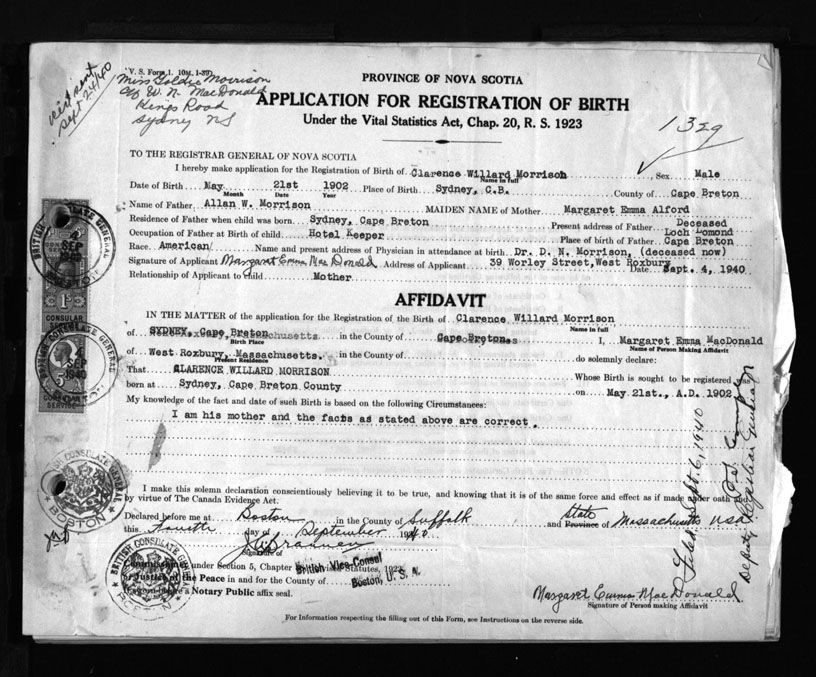 V. S. Form 1. 10M. 1-39
rect sent
Sept 24/40
Miss Goldie Morrison
c/o W. N. MacDonald
Kings Road
Sydney NS
PROVINCE OF NOVA SCOTIA
APPLICATION FOR REGISTRATION OF BIRTH
Under the Vital Statistics Act, Chap. 20, R. S. 1923
1329
TO THE REGISTRAR GENERAL OF NOVA SCOTIA
I hereby make application for the Registration of Birth of Clarence Willard Morrison Sex Male
Name in full
Date of Birth May 21st 1902 Place of Birth Sydney, C.B. County of Cape Breton
Month Date Year
Name of Father Allan W. Morrison MAIDEN NAME of Mother Margaret Emma Alford
Residence of Father when child was born Sydney, Cape Breton Present address of Father Deceased
Occupation of Father at Birth of child Hotel Keeper Place of birth of Father Loch Lomond Cape Breton
Race American Name and present address of Physician in attendance at birth Dr. D. N. Morrison, (deceased now)
Signature of Applicant Margaret Emma MacDonald Address of Applicant 39 Worley Street, West Roxbury Date Sept. 4, 1940
Relationship of Applicant to child Mother
AFFIDAVIT
IN THE MATTER of the application for the Registration of the Birth of Clarence Willard Morrison
Name in full
of SYDNEY, Cape Breton in the County of Cape Breton I, Margaret Emma MacDonald
Birth Place Name of Person Making Affidavit
of West Roxbury, Massachusetts. in the County of do solemnly declare:
Present Residence
That CLARENCE WILLARD MORRISON Whose Birth is sought to be registered was
born at Sydney, Cape Breton County on May 21st., A.D. 1902
My knowledge of the fact and date of such Birth is based on the following Circumstances:
I am his mother and the facts as stated above are correct.
I make this solemn declaration conscientiously believing it to be true, and knowing that it is of the same force and effect as if made under oath and
by virtue of The Canada Evidence Act:
Declared before me at Boston in the County of Suffolk and Province of State Massachusetts USA
this Fourth day of September 1940
Signature of
Commissioner under Section 5, Chapter Statutes, 1923
British Vice-Consul
or Justice of the Peace in and for the County of
Boston, U. S. A.
a Notary Public affix seal.
Margaret Emma MacDonald
Signature of Person making Affidavit
For Information respecting the filling out of this Form, see Instructions on the reverse side.
Filed Sept 6, 1940
Deputy Registrar General
BRITISH CONSULATE GENERAL
BOSTON
SEP
1940
CONSULAR
SERVICE
BRITISH CONSULATE GENERAL
BOSTON